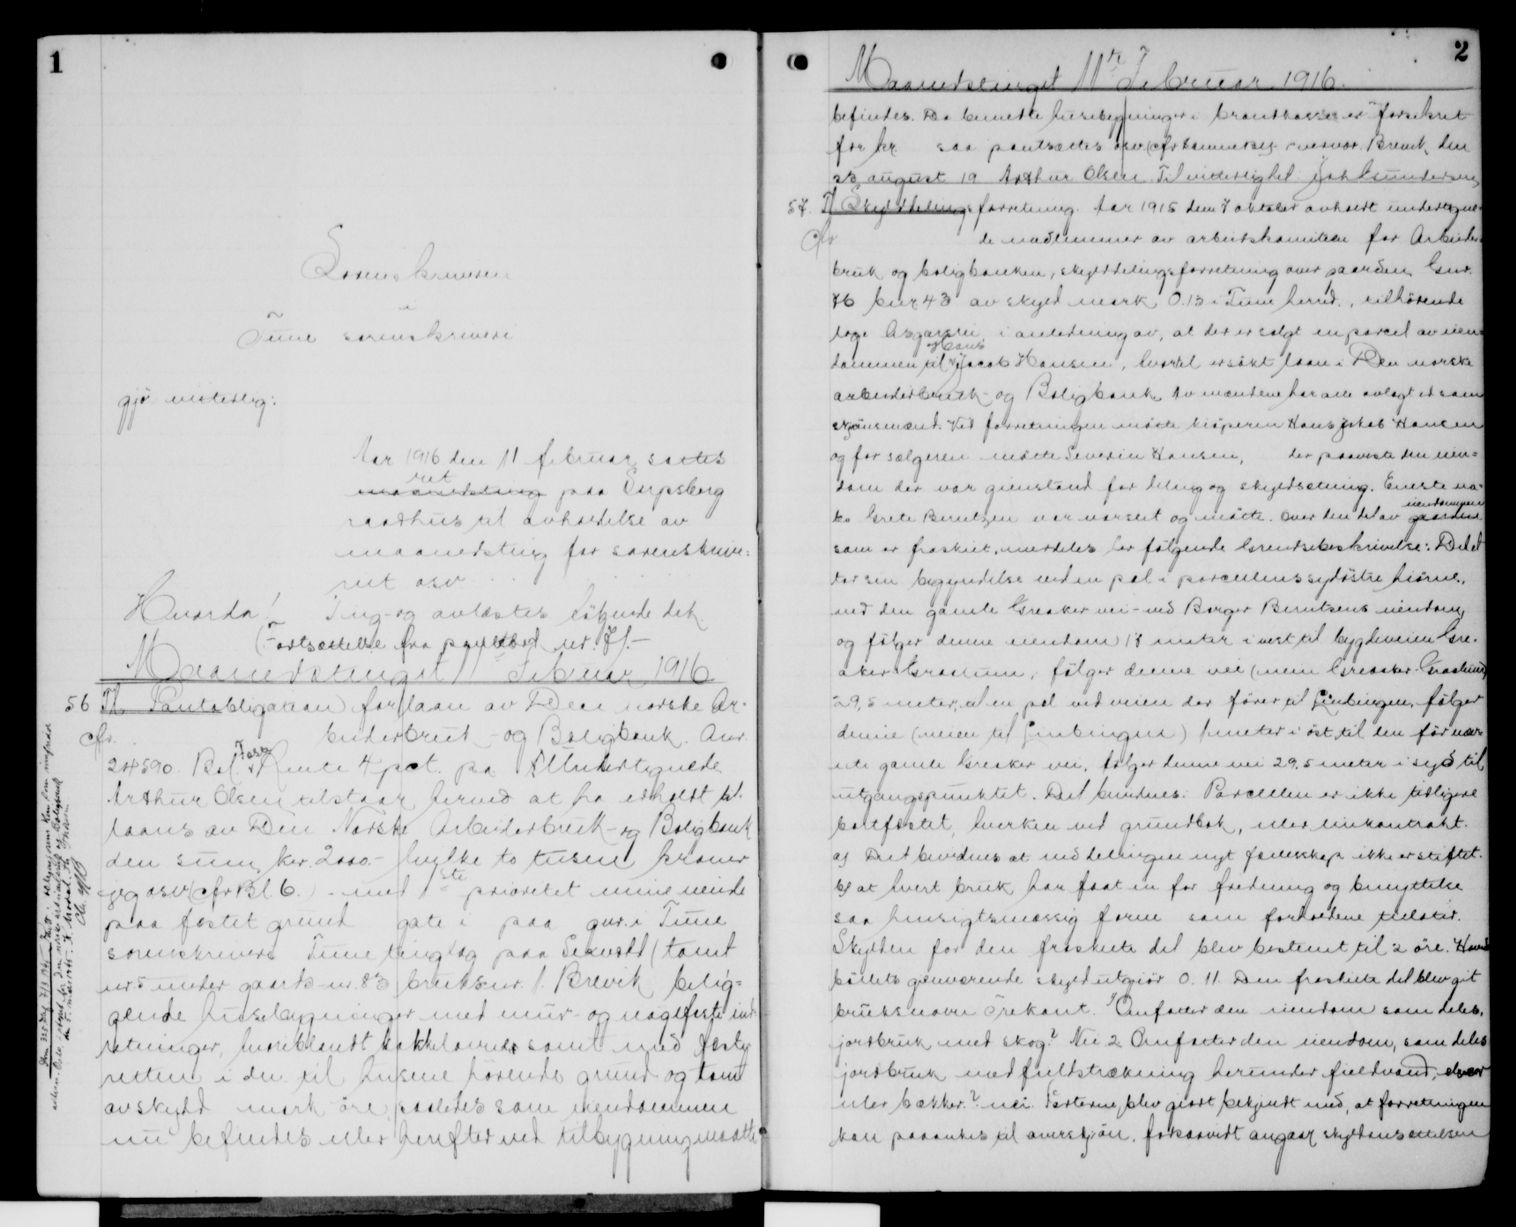 1
Sorenskriveren
i
Tune sorenskriveri
gjør vitterlig:
Aar 1916 den 11 februar sattes
ret
maanedsting paa Sarpsborg
raadhus til avholdelse av
maanedsting for sorenskrive-
riet osv
Hvorda! Ting- og avlæstes følgende dok.
(Fortsættelse fra pantebok nr. 71.-
Maanedstinget 11 Februar 1916
56 Th. Pantobligation for laan av Den norske Ar-
cfr. beiderbruk- og Boligbank. Anr.
24590. Bel. Rente 4 pct. pa. Undertegnede
Arthur Olsen tilstaar herved at ha erholdt til
laans av Den Norske Arbeiderbruk- og Boligbank
den sum kr. 2000.- hvilke to tusen kroner
jeg osv (cfr Bl 6.) - med 1ste prioritet mine neinde
paa festet grund gate i paa gnr. i Tune
sorenskriveri Tune tinglag paa (tomt
nr 5 under gaards nr. 83 bruksnr. 1. Brevik belig-
gende husebygninger med mur- og naglefaste ind-
retninger, heriblandt kakkelovner samt med feste
retten i den til husene hørende grund og tomt
avskyld mark øre, saaledes som eiendommen
nu befindes eller herefter ved tilbygning maatte
2
Maanedstinget 11te Februar 1916.
befindes. Da bemeldte husebygninger i brandkassen er forsikret
for kr saa pantsættes osv (cfr Brevik den
23 august 19 Arthur Olsen. Til vitterlighet: Joh Gundersen,
57. Th Skylddelingsforretning. Aar 1915 den 7 oktober avholdt undertegne-
cfr de medlemmer av arbeidskomiteen for Arbeider-
bruk og boligbanken, skylddelingsforretning over gaarden Gnr.
76 bnr 43 av skyld mark 0.13 i Tune herred., tilhørende
i anledning av, at der er solgt en parcel av eien-
Hans
dommen til Jacob Hansen, hvortil er søkt laan i Den norske
arbeiderbruk- og Boligbank. Av mændene har alle avlagt ed som
skjønsmænd. Ved forretningen møtte kjøperen Hans Jakob Hansen
og for sælgeren møtte Severin Hansen, der paaviste den eien-
dom der var gjenstand for deling og skyldsetning. Eneste na-
eiendommen
bo Grete Berntzen var varslet og møtte. Over den del av gaarden
som er fraskilt, meddeles her følgende Grendsebeskrivelse: Delet
tar sin begyndelse ved en pel i parcellens sydøstre hjørne,
ved den gamle Greaker vei - ved Borger Berntsens eiendom
og følger denne eiendom 17 meter i vest til bygdeveien Gre-
aker - , følger denne vei (veien Greaker -
29,5 meter, til en pel ved veien der fører til , følger
denne (veien til ) meter i øst til den før næv-
nte gamle Greaker vei, følger denne vei 29,5 meter i syd til
utgangspunktet. Det bemerkes: Parcellen er ikke tidligere
bortfestet, hverken ved grundbok, eller leiekontrakt.
a) Det bemerkes at ved delingen nyt fællesskap ikke er stiftet.
b) at hvert bruk har faat en for fredning og benyttelse
saa hensigtsmæssig form som forholdene tilater.
Skylden for den fraskilte del blev bestemt til 2 øre. Hoved-
bølets gjenværende skyld utgjør 0.11. Den fraskilte del blev git
bruksnavn Trekant. 1 Omfatter den eiendom som deles,
jordbruk med skog? Nei 2 Omfatter den eiendom, som deles
jordbruk med fjeldstrækning herunder fjeldvand, elver
eller bækker? nei. Parterne blev gjort bekjendt med, at forretningen
kan paaankes til overskjøn, forsaavidt angaar skyldansættelsen